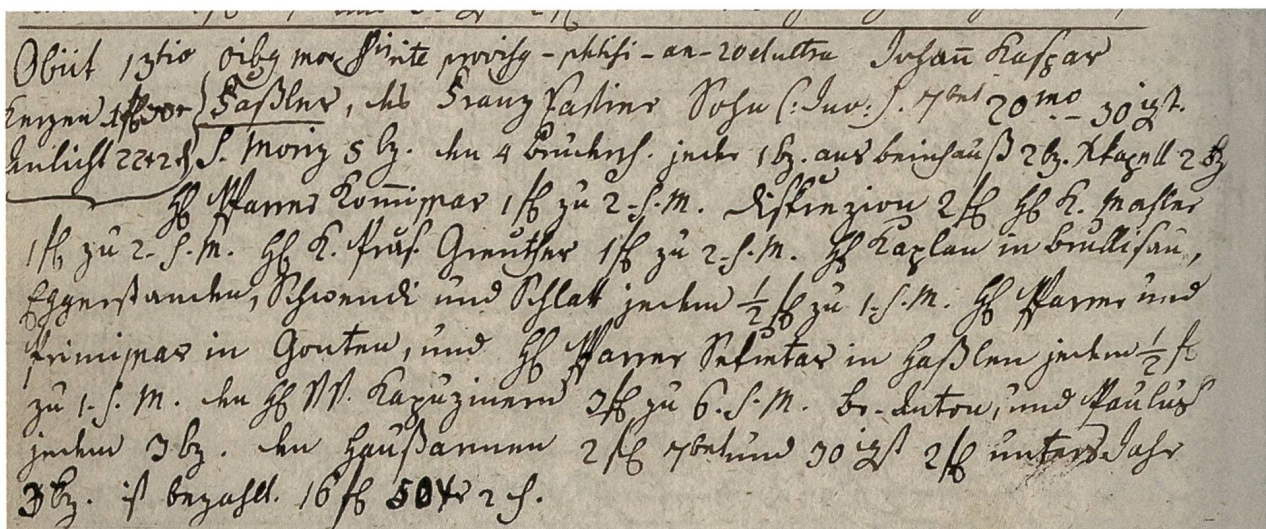 Obiit 13tio 8ibg mox Sinite provisg - phtisi - an - 20 et ultra Johan̄ Kaspar
Kerzen 1 fl 30 x } Faßler, des Franz Sohn (: Juv :) 7bet 20mo 30igst.
Anlicht 22 x 2 ₰ S. Moriz 5 bz. den 4 Brudersch. jeder 1 bz. ans beinhauß 2 bz. Kapell 2 bz
HH Pfarrer Kom̄issar 1 fl zu 2. h. M. Diskrezion 2 fl HH K. Maßler
1 fl zu 2. h. M. HH K. Präs. Greuther 1 fl zu 2. h. M. HH Kaplan in Brullisau,
Eggerstanden, Schwendi und Schlatt jedem ½ fl zu 1. h. M. HH Pfarrer und
Primissar in Gonten, und HH Pfarrer Sekretar in Haßlen jedem ½ fl
zu 1. h. M. den HH VV. Kapuzinern 3 fl zu 6. h. M. br. Anton, und Paulus
jedem 3 bz. den Haußarmen 2 fl 7bet und 30igst 2 fl unters Jahr
3 bz. ist bezahlt. 16 fl 50 xr 2 ₰.